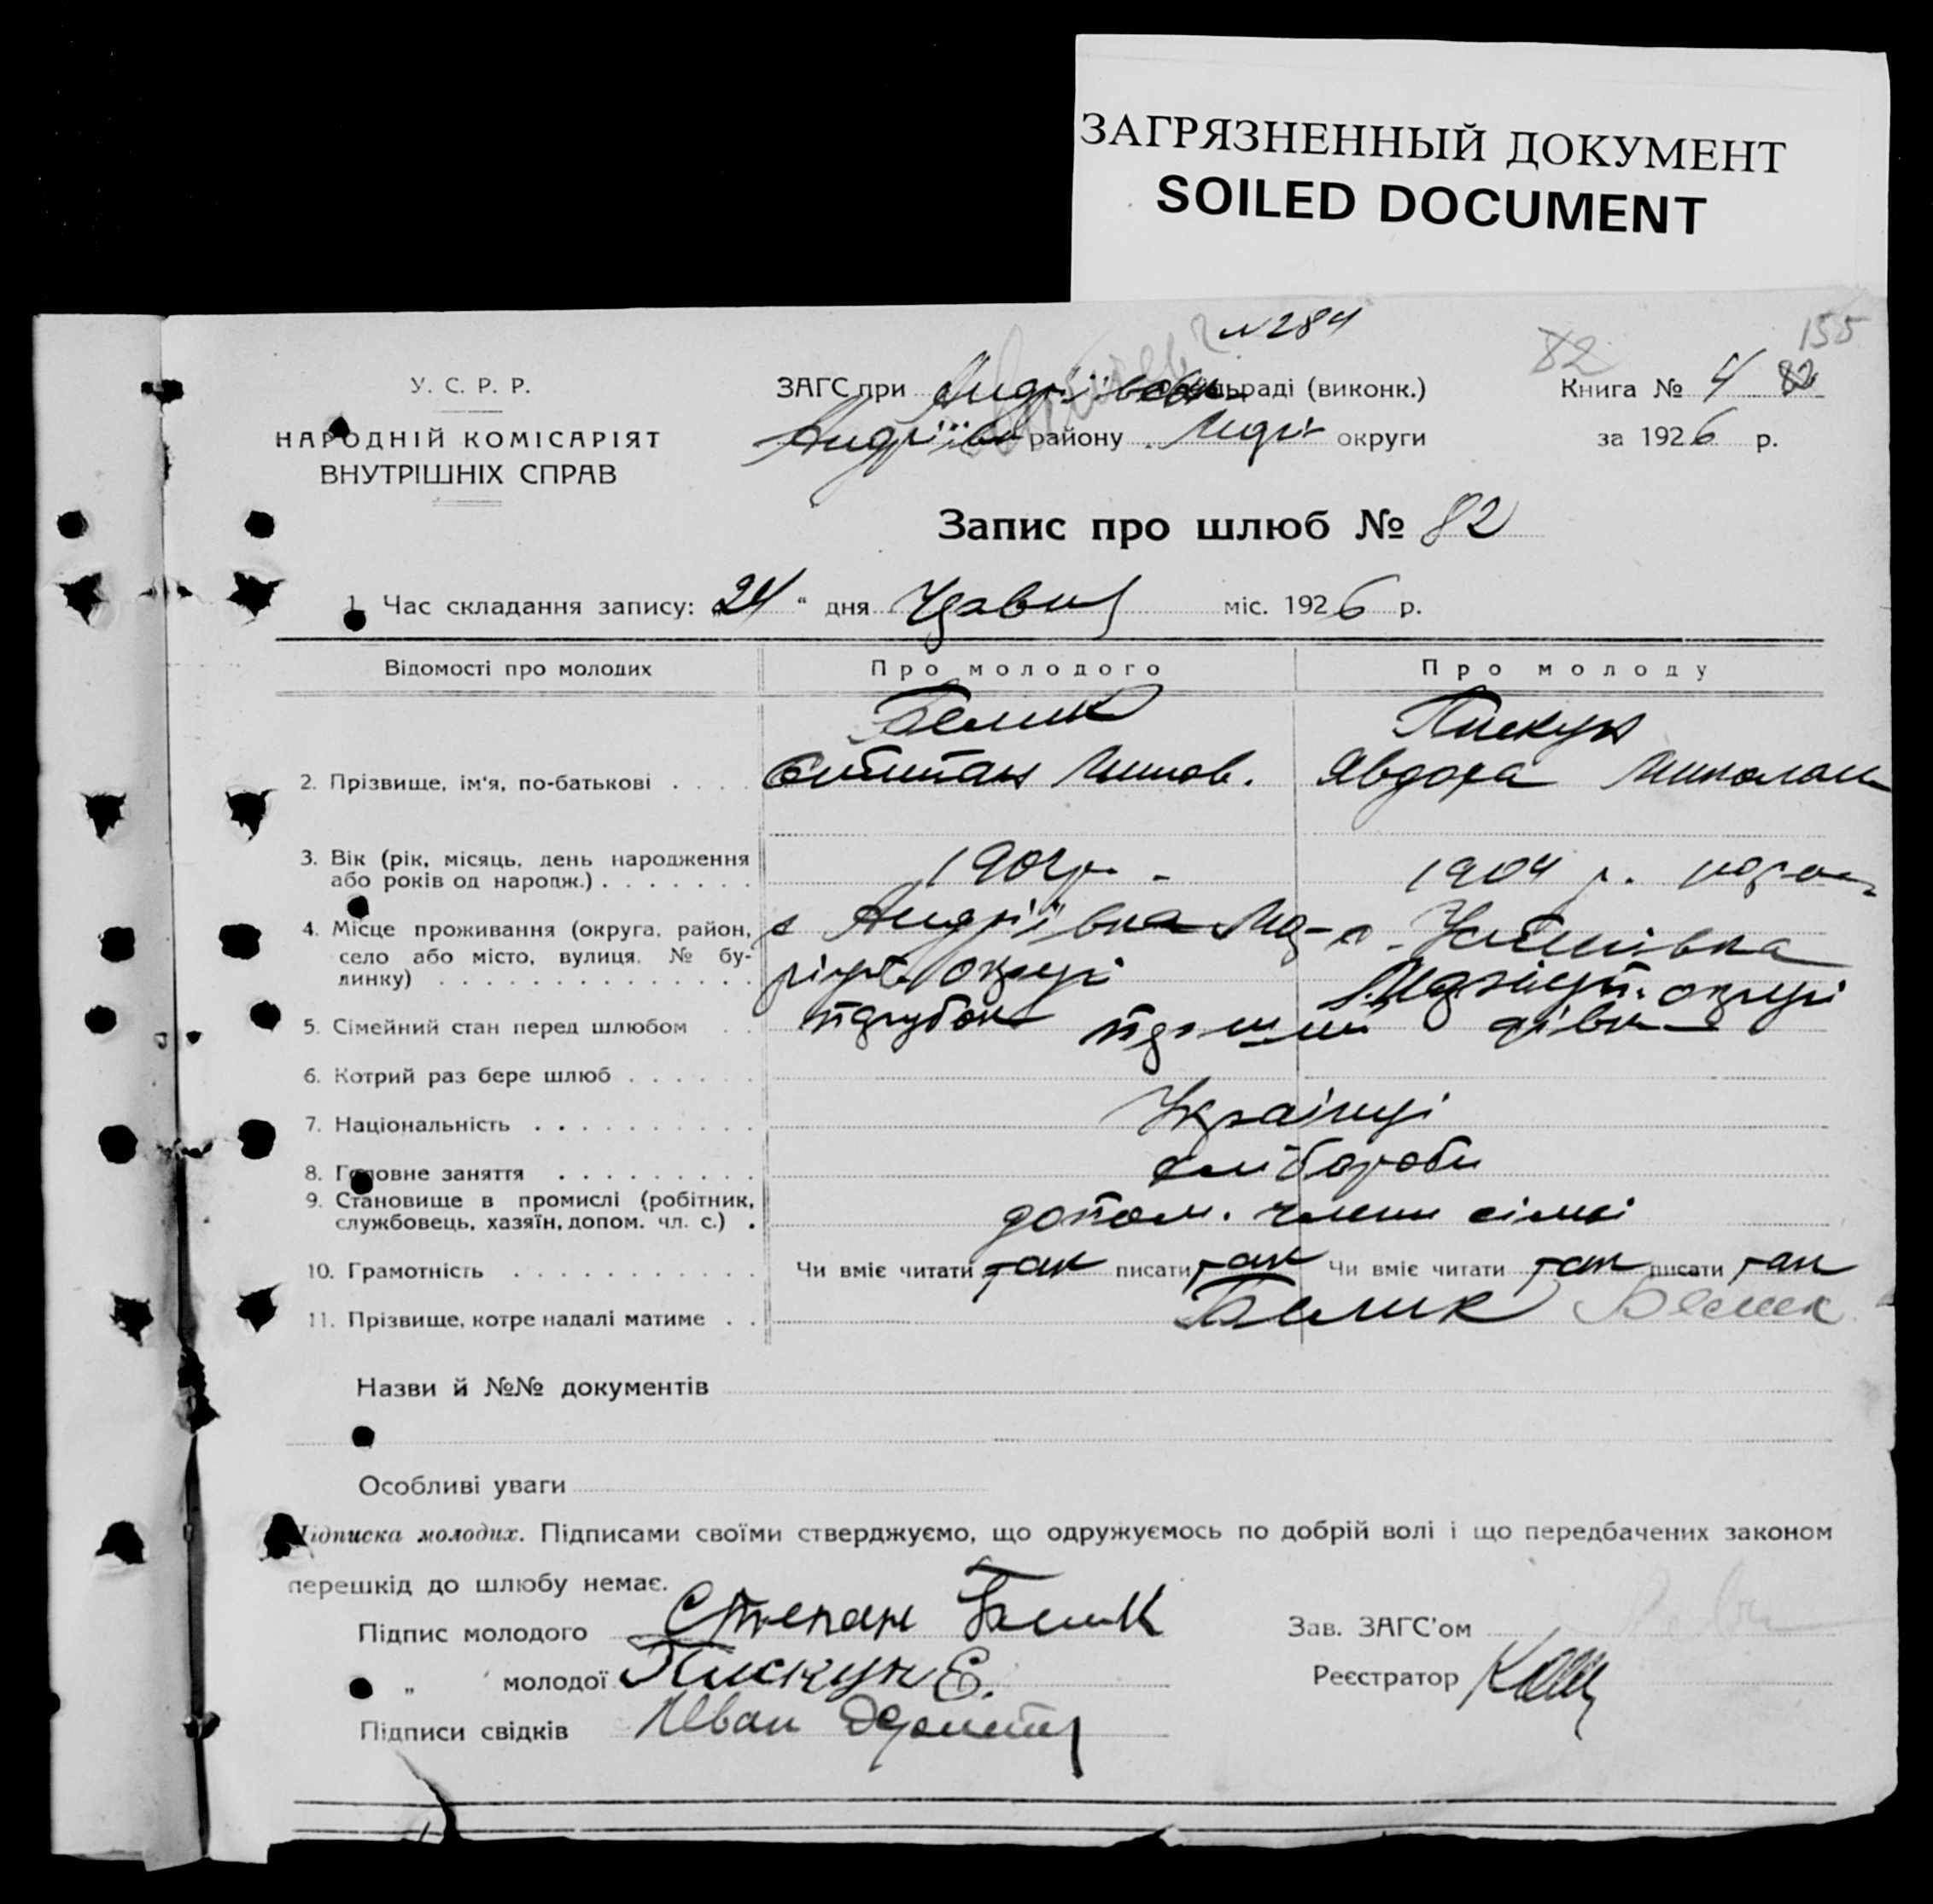 ЗАГРЯЗНЕННЫЙ ДОКУМЕНТ
SOILED DOCUMENT
№ 284
82
155
У. С. Р. Р.
НАРОДНІЙ КОМІСАРІЯТ
ВНУТРІШНІХ СПРАВ
ЗАГС при Андріївськ раді (виконк.)
Андріївськ району округи
Книга № 4 82
за 1926 р.
Запис про шлюб № 82
1. Час складання запису: „24“ дня міс. 1926 р.
Відомості про молодих Про молодого Про молоду
Белик Пискун
2. Прізвище, ім'я, по-батькові . . . . Явдоха Миколаи
3. Вік (рік, місяць, день народження
або років од народж.) . . . . . . . 1904 р. 1904 р.
4. Місце проживання (округа, район, с Андріївка
село або місто, вулиця. № бу-
динку) . . . . . . . . . . . . . . округи округи
5. Сімейний стан перед шлюбом . . парубок перший дівка
6. Котрий раз бере шлюб . . . . . .
7. Національність . . . . . . . . . . Українці
8. Головне заняття . . . . . . . . . хлібороби
9. Становище в промислі (робітник,
службовець, хазяїн, допом. чл. с.) . допом. члени сімьї
10. Грамотність . . . . . . . . . . . Чи вміє читати так писати так Чи вміє читати так писати так
11. Прізвище, котре надалі матиме . . Белик Белик
Назви й №№ документів
Особливі уваги
Підписка молодих. Підписами своїми стверджуємо, що одружуємось по добрій волі і що передбачених законом
перешкід до шлюбу немає.
Підпис молодого Степан Белик
Зав. ЗАГС'ом
„ молодої Пискун Е.
Реєстратор
Підписи свідків Иван